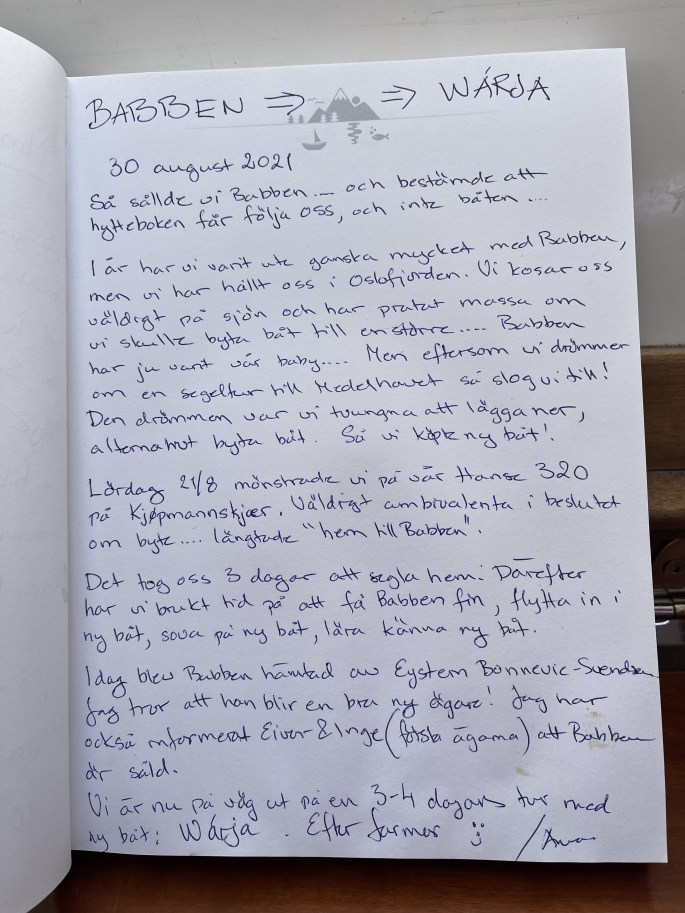 BABBEN ⇒ ⇒ WÁRJA
30 august 2021
Så sållde vi Babben .... och bestämde att
hytteboken får följa oss, och inte båten ....
I år har vi varit ute ganska mycket med Babben,
men vi har hållt oss i Oslofjorden. Vi kosar oss
väldigt på sjön och har pratat massa om
vi skulle byta båt till en större .... Babben
har ju varit vår baby.... Men eftersom vi drömmer
om en segeltur till Medelhavet så slog vi till!
Den drömmen var vi tvungna att lägga ner,
alternativt byta båt. Så vi köpte ny båt!
Lördag 21/8 mönstrade vi på vår Hanse 320
på Kjøpmannskjær. Väldigt ambivalenta i beslutet
om byte .... längtade "hem till Babben".
Det tog oss 3 dagar att segla hem. Därefter
har vi brukt tid på att få Babben fin, flytta in i
ny båt, sova på ny båt, lära känna ny båt.
Idag blev Babben hämtad av Eystein Bonnevie-Svendsen
Jag tror att han blir en bra ny ägare! Jag har
också informerat Eivor & Inge (första ägarna) att Babben
är såld.
Vi är nu på väg ut på en 3-4 dagars tur med
ny båt: Wárja . Efter farmor :)  /